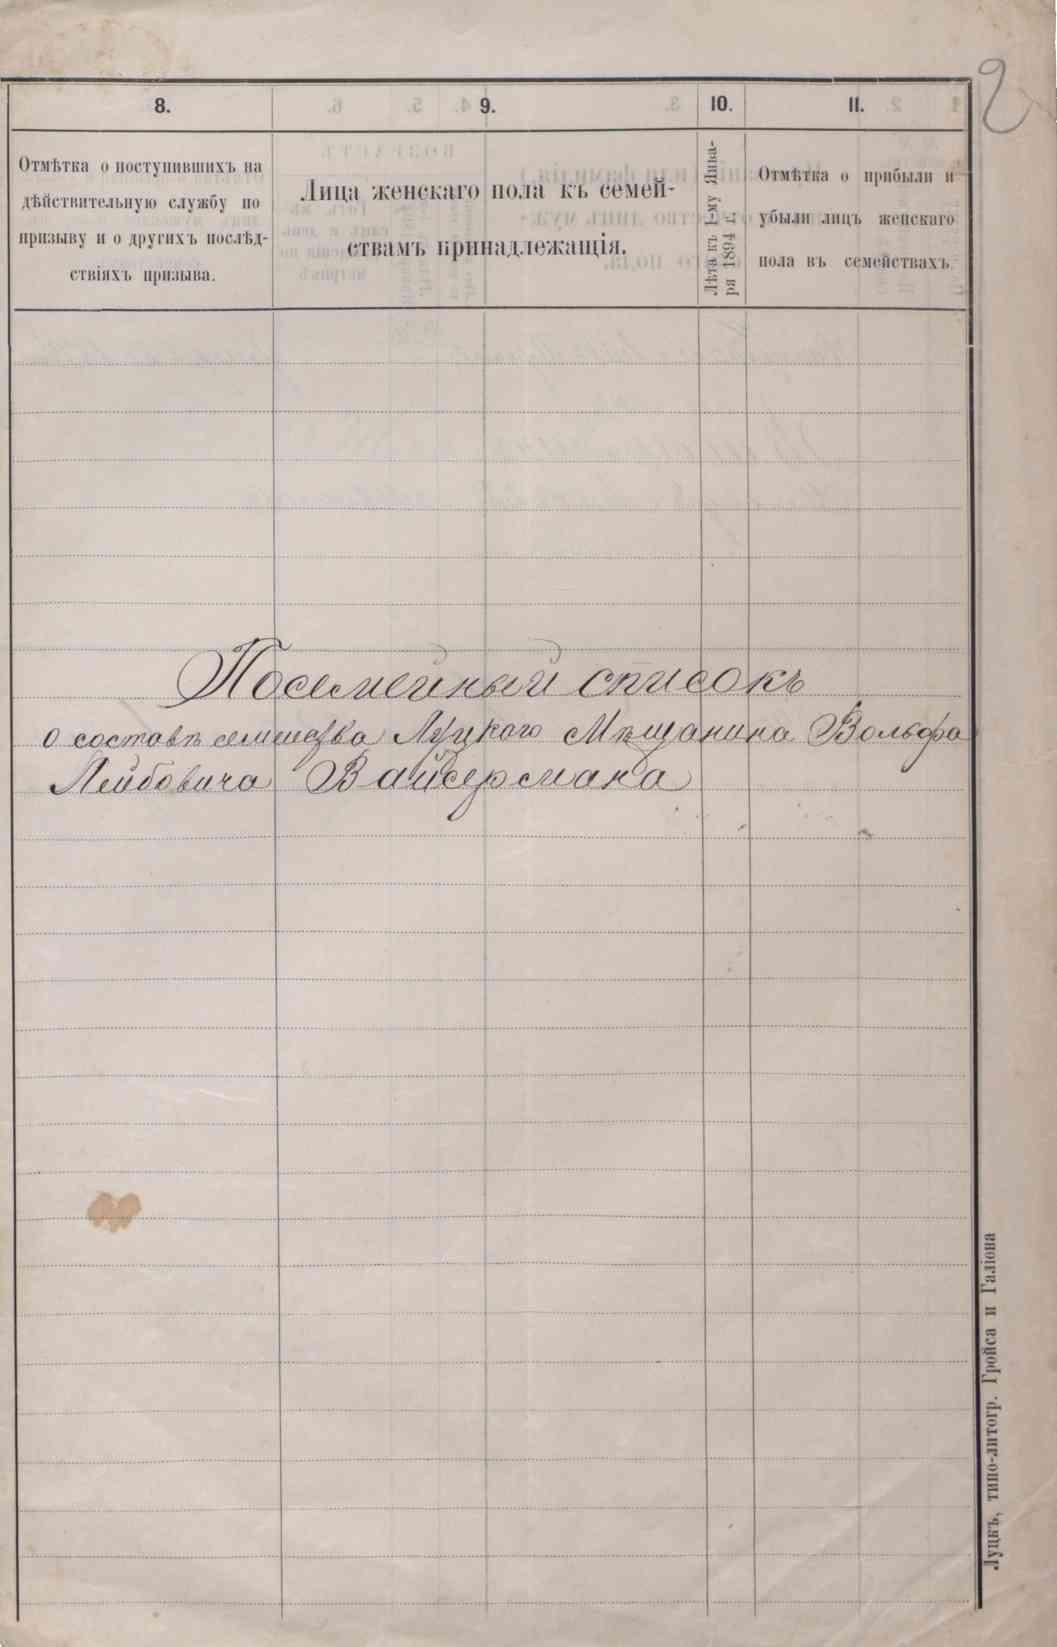 2
8.
9.
10.
11.
Отмѣтка о поступившихъ на
дѣйствительную службу по
призыву и о другихъ послѣд-
ствіяхъ призыва.
Лица женскаго пола къ семей-
ствамъ принадлежащія.
Лѣта къ 1-му Янва-
ря 1894 г.
Отмѣтка о прибыли и
убыли лицъ женскаго
пола въ семействахъ.
Посемейный списокъ
о составѣ семейства Луцкаго Мѣщанина Вольфа
Лейбовича Вайсермана
Луцкъ, типо-литогр. Гройса и Галіона